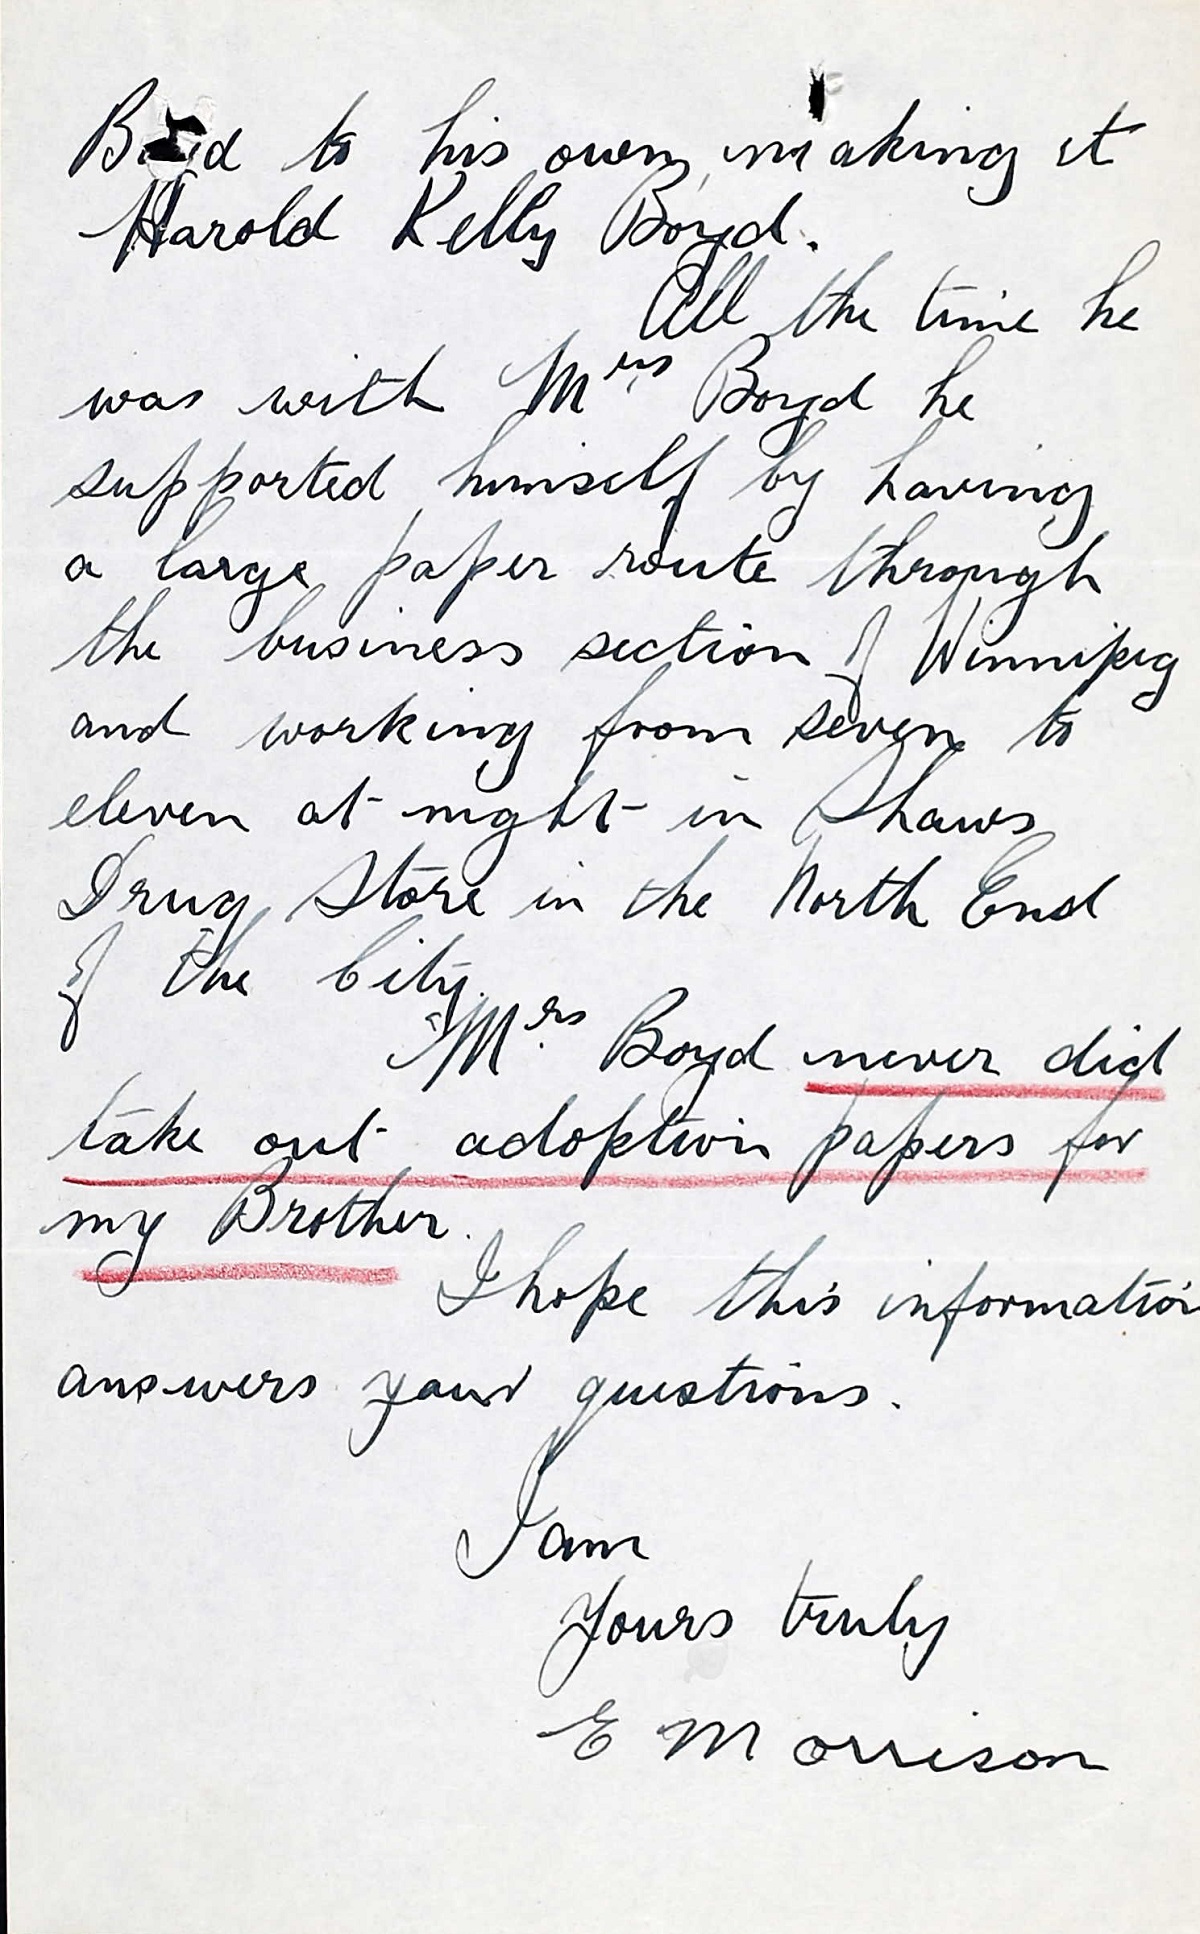 Boyd to his own, making it
Harold Kelly Boyd.
All the time he
was with Mrs Boyd he
supported himself by having
a large paper route through
the business section of Winnipeg
and working from seven to
eleven at night in Shaws
Drug Store in the North End
of the City.
Mrs. Boyd never did
take out adoption papers for
my Brother.
I hope this information
answers your questions.
I am
Yours truly
E Morrison